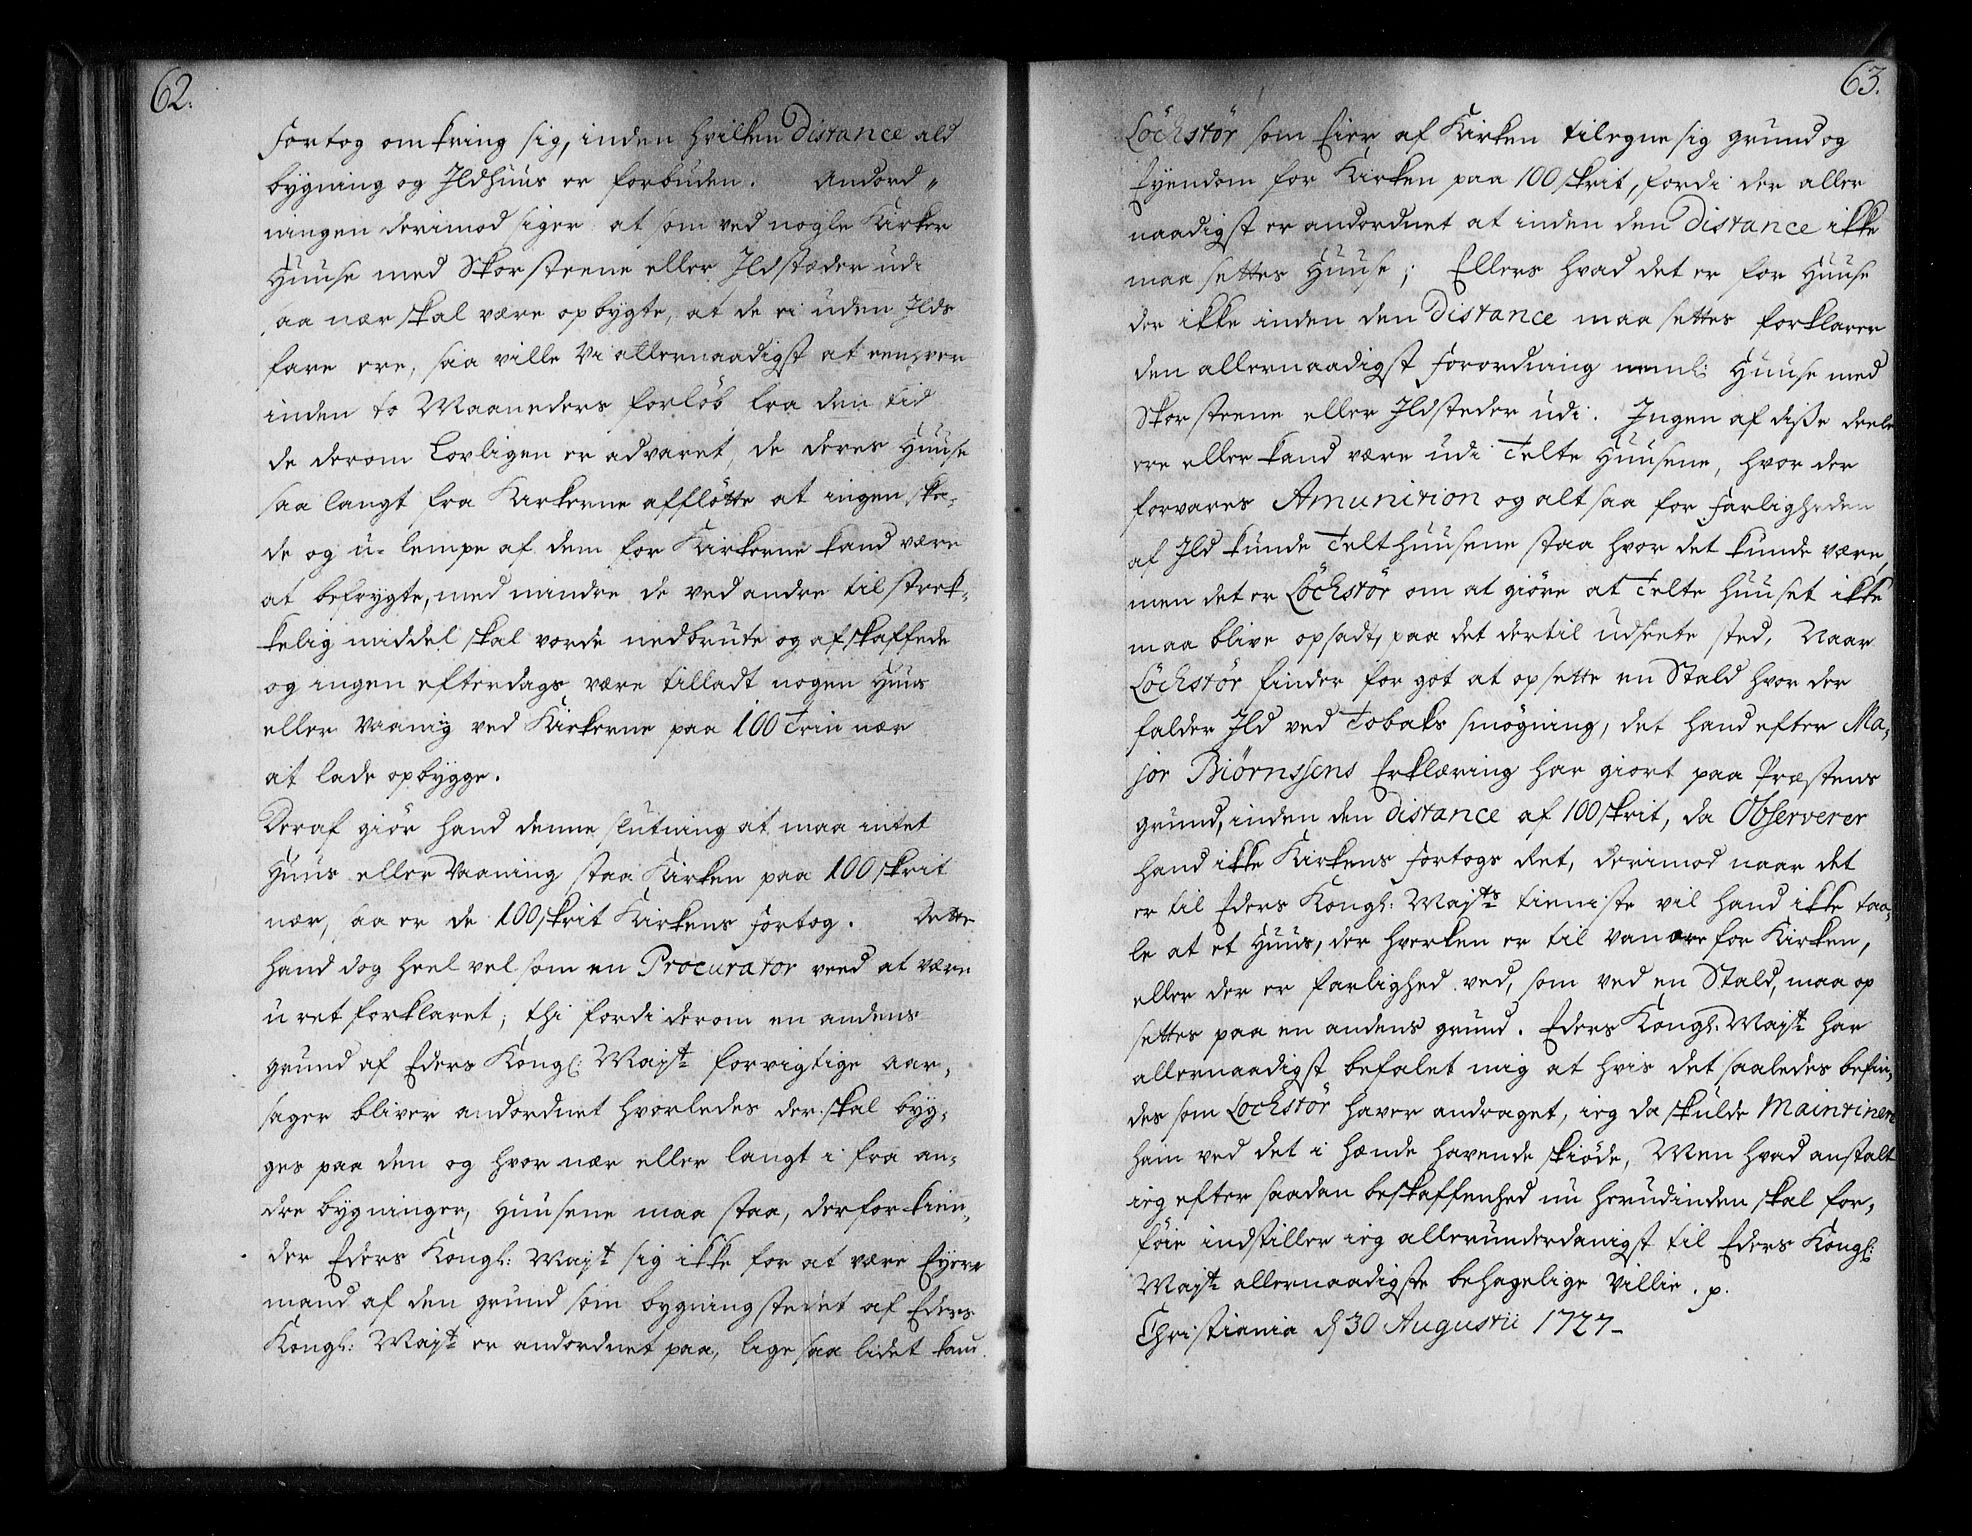 62.
Fortog omkring sig, inden hvilken Distance ald
bygning og Ildhuus er forbuden. Andord„
ningen derimod siger at som ved nogle Kirker
Huuse med Skorsteene eller Ildstæder udi
saa nær skal være opbygte, at de ei uden Ilds
fare ere, saa ville Vi allernaadigst at eenhver
inden to Maaneders forløb fra den tid
de derom Lovligen er advaret, de deres Huuse
saa langt fra Kirkerne affløtte at ingen ska-
de og u-lempe af dem for Kirkerne kand være
at befrygte, med mindre de ved andre tilstrek-
kelig middel skal vorde nedbrudte og afskaffede
og ingen efterdags være tilladt nogen Huus
eller Vaanig ved Kirkerne paa 100 Trin nær
at lade opbygge.
Deraf giör hand denne slutning at maa intet
Huus eller Vaaning staa Kirken paa 100 skrit
nær, saa er de 100 skrit Kirkens fortog. Dette
hand dog heel vel som en Procurator veed at være
uret forklaret; thi fordi derom en andens
grund af Eders Kongl: Majt. forvigtige aar-
sager bliver andordnet hvorledes der skal byg-
ges paa den og hvor nær eller langt i fra an-
dre bygninger, Huusene maa staa, derfor kien-
der Eders Kongl: Majt sig ikke for at være Eyere
mand af den grund som bygningstedet af Eders
Kongl: Majt. er andordnet paa, lige saa lidet kand
63.
Löchstör som Eier af Kirken tilegne sig grund og
Eyendom for Kirken paa 100 skrit, fordi der aller
naadigst er andordnet at inden den Distance ikke
maa settes Huuse; Ellers hvad det er for Huuse
der ikke inden den Distance maa settes forklarer
den allernaadigst Forordning neml: Huuse med
Skorsteene eller Ildsteder udi. Ingen af disse deele
ere eller kand være udi Telte Huusene, hvor der
forvares Amunition og altsaa for farligheden
af Ild kunde Telthuusene staa hvor det kunde være,
men det er Löchstör om at giöre at Telte Huuset ikke
maa blive opsadt, paa det dertil udseete sted, Naar
Löchstör finder for got at opsette en Stald hvor der
falder Ild ved Tobaks smögning, det hand efter Ma-
jor Biörnssens Erklæring har giort paa Præstens
grund, inden den distance af 100 skrit, da Observerer
hand ikke Kirkens fortogs Ret, derimod naar det
er til Eders Kongl: Majts. tieniste vil hand ikke taa-
le at et Huus, der hverken er til Vanære for Kirken,
eller der er farlighed ved, som ved en Stald, maa op
settes paa en andens grund. Eders Kongl: Majt. har
allernaadigst befalet mig at hvis det saaledes befin-
des som Lochstör haver andraget, ieg da skulde Maintinere
ham ved det i hænde havende skiöde, Men hvad anstalt
ieg efter saadan beskaffenhed nu herudinden skal for-
föie indstiller ieg allerunderdanigst til Eders Kongl:
Majt. allernaadigste behagelige Villie. p.
Christiania d 30 Augustii 1727-